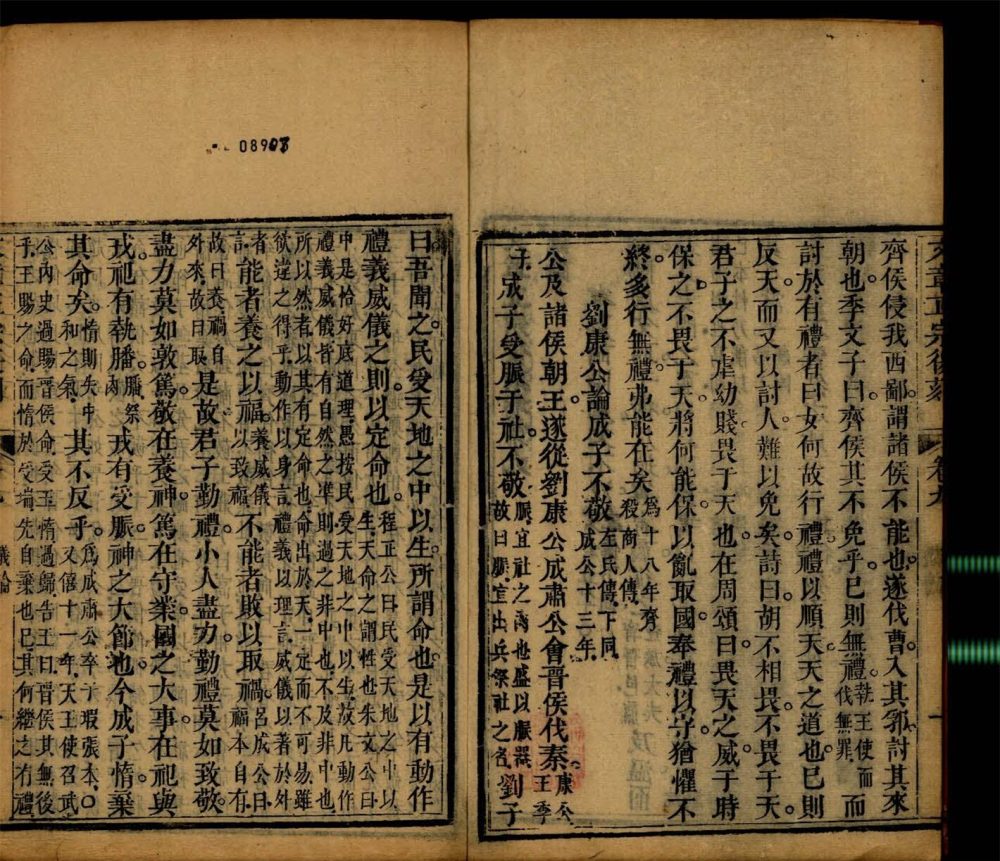 齊侯侵我西鄙謂諸侯不能也遂伐曹入其郛討其來
朝也季文子曰齊侯其不免乎已則無禮執王使而伐無罪而
討於有禮者曰女何故行禮禮以順天天之道也已則
反天而又以討人難以免矣詩曰胡不相畏不畏于天
君子之不虐幼賤畏于天也在周頌曰畏天之威于時
保之不畏于天將何能保以亂取國奉禮以守猶懼不
終多行無禮弗能在矣為十八年齊殺商人傳
劉康公論成子不敬左氏傳下同成公十三年
公及諸侯朝王遂從劉康公成肅公會晉侯伐秦康公王季
子成子受脤于社不敬脤宜社之肉也盛以脤器故曰脤宜出兵祭社之名劉子
曰吾聞之民受天地之中以生所謂命也是以有動作
禮義威儀之則以定命也程正公曰民受天地之中以生天命之謂性也朱文公曰
中是恰好底道理愚按民受天地之中以生故凡動作禮義威儀皆有自然之準則過之非中也不及非中也
所以然者以其有定命也命出於天一定而不可易雖欲違之得乎動作以身言禮義以理言威儀以著於外
者言能者養之以福養威儀以致福不能者敗以取禍呂成公曰福本自有
故曰養禍自外來故曰取是故君子勤禮小人盡力勤禮莫如致敬
盡力莫如敦篤敬在養神篤在守業國之大事在祀與
戎祀有執膰膰祭肉戎有受脤神之大節也今成子惰棄
其命矣惰則失中和之氣其不反乎為成肅公卒于瑕張本○又僖十一年天王使召武
公內史過賜晉侯命受玉惰過歸告王曰晉侯其無後乎王賜之命而惰於受瑞先自棄也已其何繼之有禮
文章正宗復刻
卷九
一
議論
0890